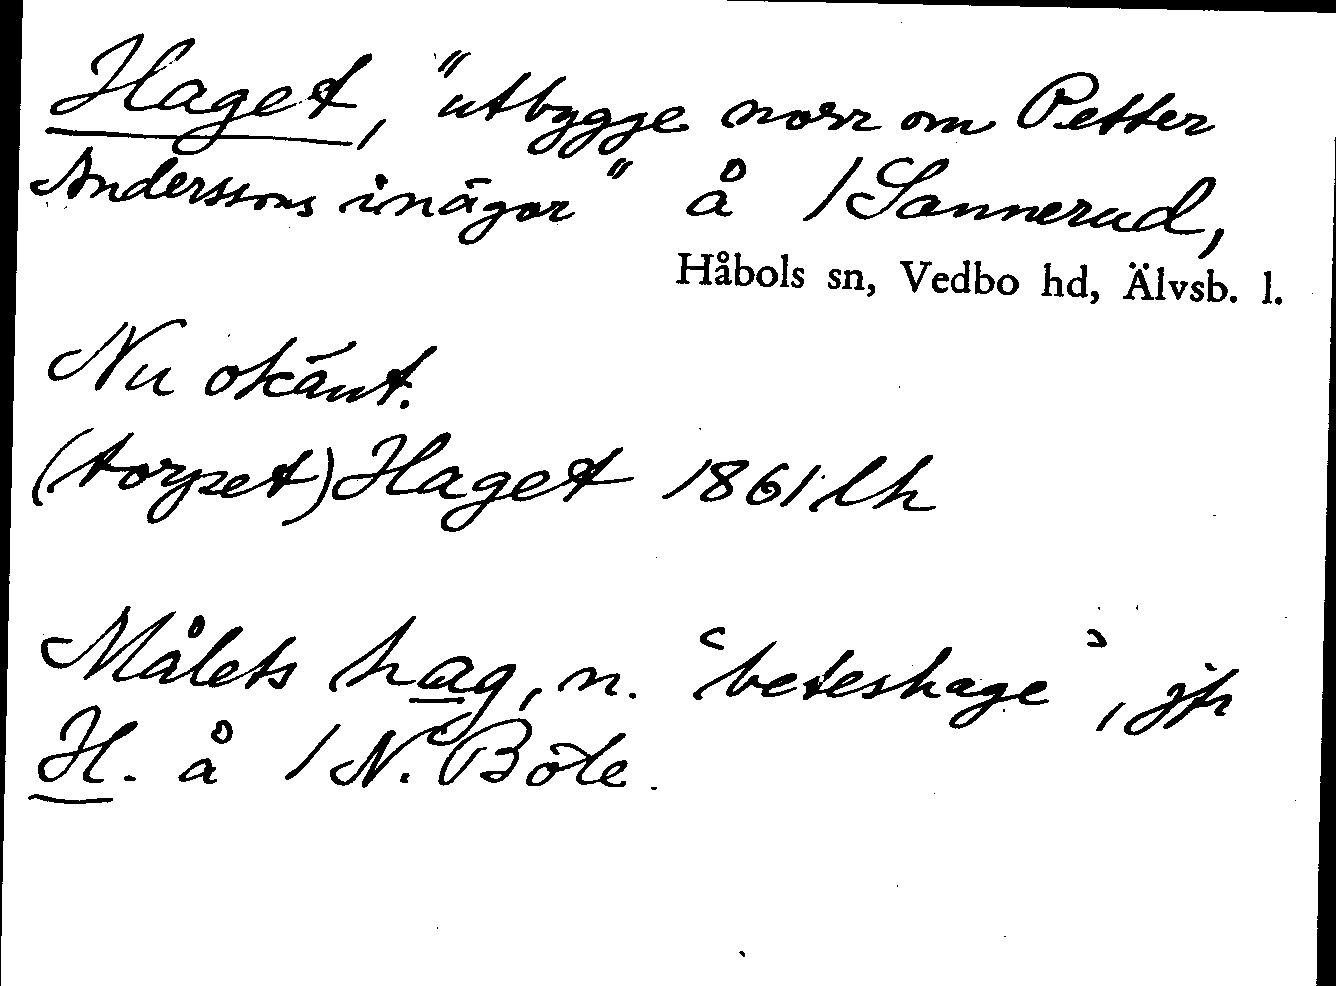 Haget, "utbygge norr om Petter
Anderssons inägor" å 1 Sannerud,
Håbols sn, Vedbo hd, Älvsb. l.
Nu okänt.
(torpet) Haget 1861 lh
Målets hag, n. ‘beteshage’, jfr
H. å 1 N. Böle.